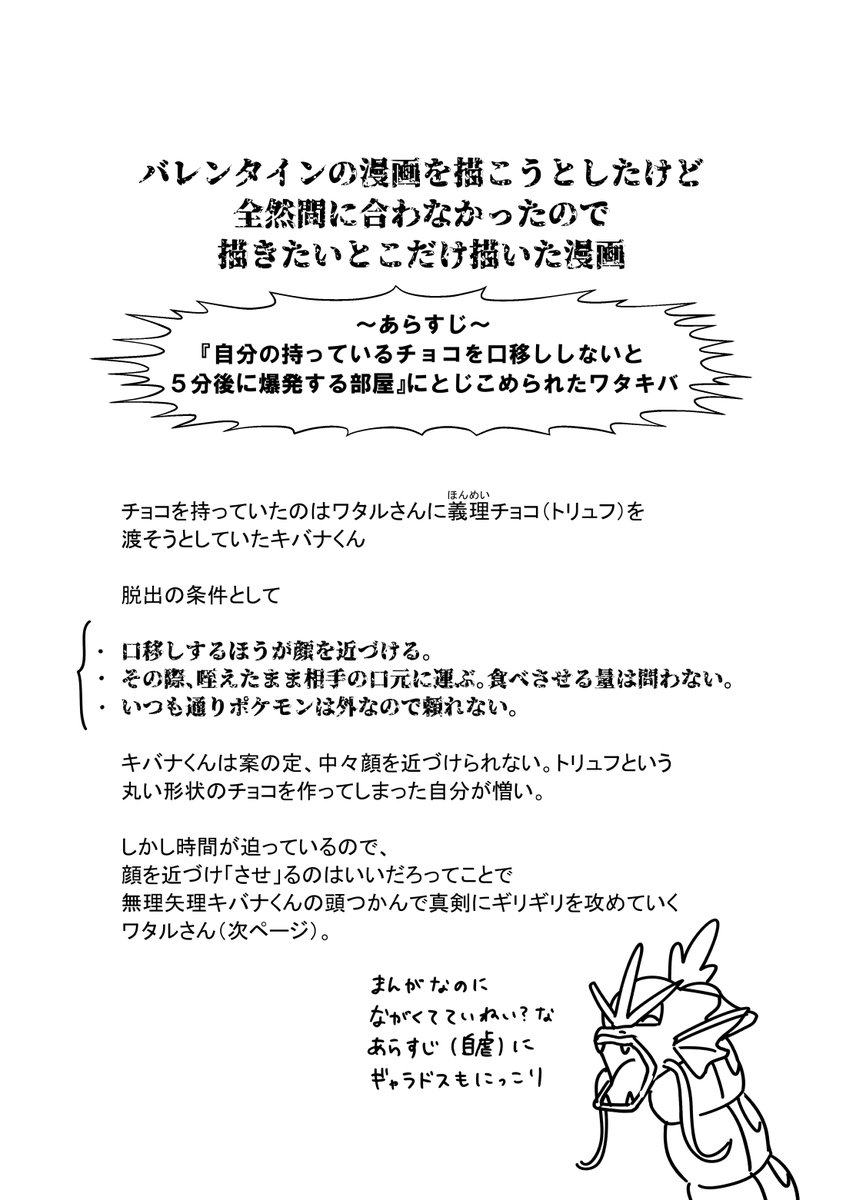 バレンタインの漫画を描こうとしたけど
全然間に合わなかったので
描きたいとこだけ描いた漫画
～あらすじ～
『自分の持っているチョコを口移ししないと
５分後に爆発する部屋』にとじこめられたワタキバ
ほんめい
チョコを持っていたのはワタルさんに義理チョコ（トリュフ）を
渡そうとしていたキバナくん
脱出の条件として
・ 口移しするほうが顔を近づける。
・ その際、咥えたまま相手の口元に運ぶ。食べさせる量は問わない。
・ いつも通りポケモンは外なので頼れない。
キバナくんは案の定、中々顔を近づけられない。トリュフという
丸い形状のチョコを作ってしまった自分が憎い。
しかし時間が迫っているので、
顔を近づけ「させ」るのはいいだろってことで
無理矢理キバナくんの頭つかんで真剣にギリギリを攻めていく
ワタルさん（次ページ）。
まんがなのに
ながくてていねい？な
あらすじ（自虐）に
ギャラドスもにっこり